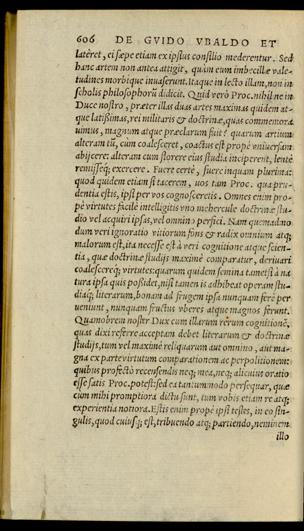 606 DE GVIDO VBALDO ET
latêret, ei sæpe etiam ex ipsius consilio mederentur. Sed
hanc artem non antea attigit, quàm eum imbecillæ vale-
tudines morbique inuaserunt. Itaque in lecto illam, non in
scholis philosophorũ didicit. Quid verò Proc. nihil ne in
Duce nostro, præter illas duas artes maximas quidem at-
que latissimas, rei militaris & doctrinæ, quas commemora
uimus, magnum atque præclarum fuit? quarum artium
alteram tũ, cum coalesceret, coactus est propè vniuersam
abijcere: alteram cum florere eius studia inciperent, lentè
remisseq; exercere. Fuere certè, fuere inquam plurima:
quod quidem etiam si tacerem, uos tam Proc. qua pru-
dentia estis, ipsi per vos cognosceretis. Omnes enim pro-
pè virtutes facilè intelligitis vno mehercule doctrinæ stu-
dio vel acquiri ipsas, vel omnino perfici. Nam quemadmo
dum veri ignoratio vitiorum fons & radix omnium atq;
malorum est, ita necesse est à veri cognitione atque scien-
tia, quæ doctrinæ studijs maximè comparatur, deriuari
coalescereq; virtutes: quarum quidem semina tametsi à na
tura ipsa quis possidet, nisi tamen is adhibeat operam stu-
diaq; literarum, bonam ad frugem ipsa nunquam ferè per
ueniunt, nunquam fructus vberes atque magnos ferunt.
Quamobrem noster Dux cum illarum rerum cognitionẽ,
quas dixi referre acceptam debet literarum & doctrinæ
studijs, tum vel maximè reliquarum aut omnino, aut ma-
gna ex parte virtutum comparationem ac perpolitionem:
quibus profectò recensendis neq; mea, neq; alicuius oratio
esse satis Proc. potest: sed ea tantummodo persequar, quæ
cum mihi promptiora dictu sunt, tum vobis etiam re atq;
experientia notiora. Estis enim propè ipsi testes, in eo sin-
gulis, quod cuiusq; est, tribuendo atq; partiendo, neminem
illo